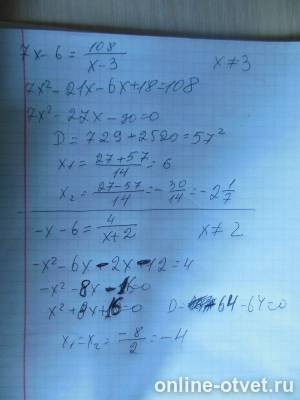 7x - 6 = 108/(x-3)    x ≠ 3
7x² - 21x - 6x + 18 = 108
7x² - 27x - 90 = 0
D = 729 + 2520 = 57²
x₁ = (27+57)/14 = 6
x₂ = (27-57)/14 = -30/14 = -2 1/7
-x - 6 = 4/(x+2)    x ≠ 2
-x² - 6x - 2x - 12 = 4
-x² - 8x - 16 = 0
x² + 8x + 16 = 0    D = 64 - 64 = 0
x₁ = x₂ = -8/2 = -4
online-otvet.ru